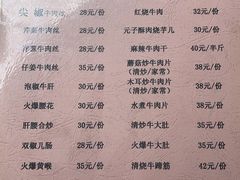 尖椒牛肉丝 28元/份 红烧牛肉 32元/份
芹菜牛肉丝 28元/份 元子酥肉烧芋儿 30元/份
洋葱牛肉丝 28元/份 麻辣牛肉干 40元/半斤
仔姜牛肉丝 35元/份 蘑菇炒牛肉片 35元/份
(清炒/家常)
泡椒牛肝 30元/份 木耳炒牛肉片 35元/份
(清炒/家常)
火爆腰花 30元/份 水煮牛肉片 30元/份
肝腰合炒 30元/份 清炒牛大肚 35元/份
双椒儿肠 28元/份 火爆牛大肚 35元/份
火爆黄喉 35元/份 清烧牛蹄筋 42元/份